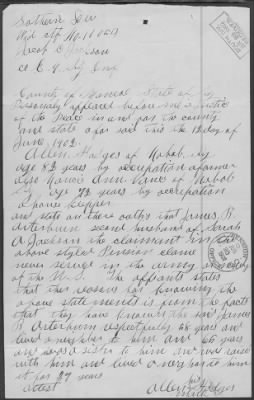 Southern Div
Wid ctf No.
Jacob E Jackson
Co. C. 9 Ky Cav
County of Monroe State of Ky
Personaly appeared before me a Justice
of the Peace in and for the county
and state afor said this the day of
June 1902.
Allen Hodges of Kahob, Ky
age 82 years by occupation a farmer
also Nancie Ann of Kahob
Ky age 72 years by occupation
a house keeper
and state on there oaths that James R.
Arterburn second husband of Sarah
A Jackson the claimant in the
above styled Pension claim
never served in the army or
of the U.S. The affiants states
that ther reasons for knowing the
above statements is from the facts
that they have known the said James
R. Arterburn respectfuly 68 years and
lived a neighbor to him and 65 years
and was a sister to him and was raised
with him and lived a neighbor to him
it for 29 years
attest
Allen his Hodges
mark